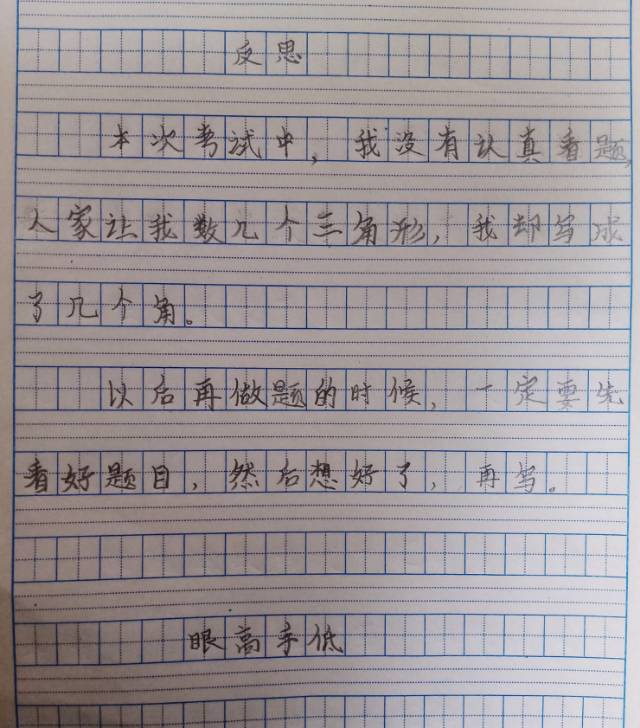 反思
本次考试中，我没有认真看题，
人家让我数几个三角形，我却写成
了几个角。
以后再做题的时候，一定要先
看好题目，然后想好了，再写。
眼高手低